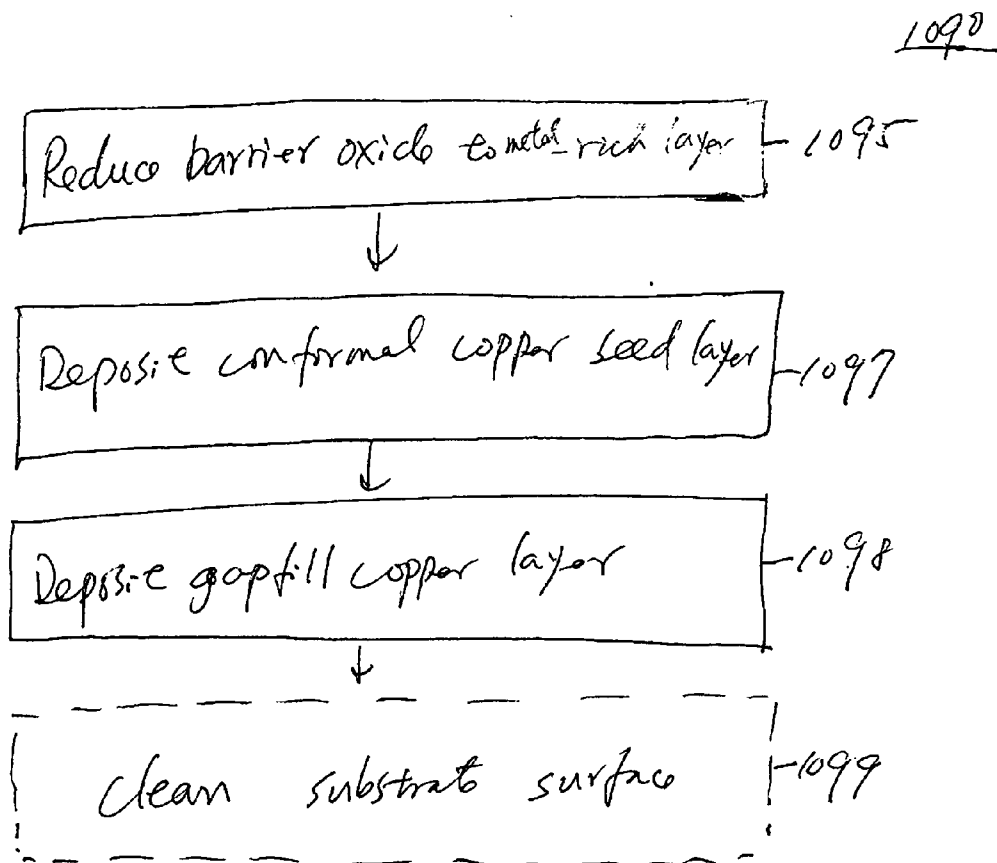 1090
Reduce barrier oxide to metal-rich layer 1095
Deposit conformal copper seed layer 1097
Deposit gapfill copper layer 1098
clean substrate surface 1099